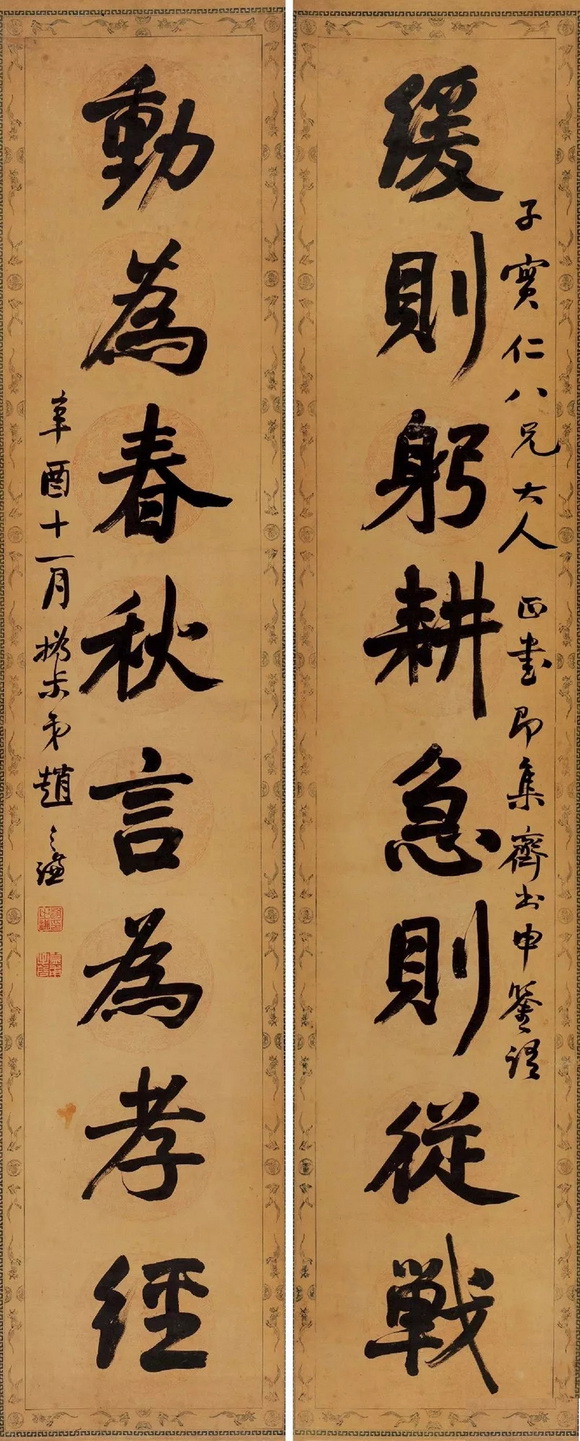 子實仁八兄大人 正書即集齊書申鑒語
緩則躬耕急則從戰
動為春秋言為孝經
辛酉十一月撝未弟趙之謙